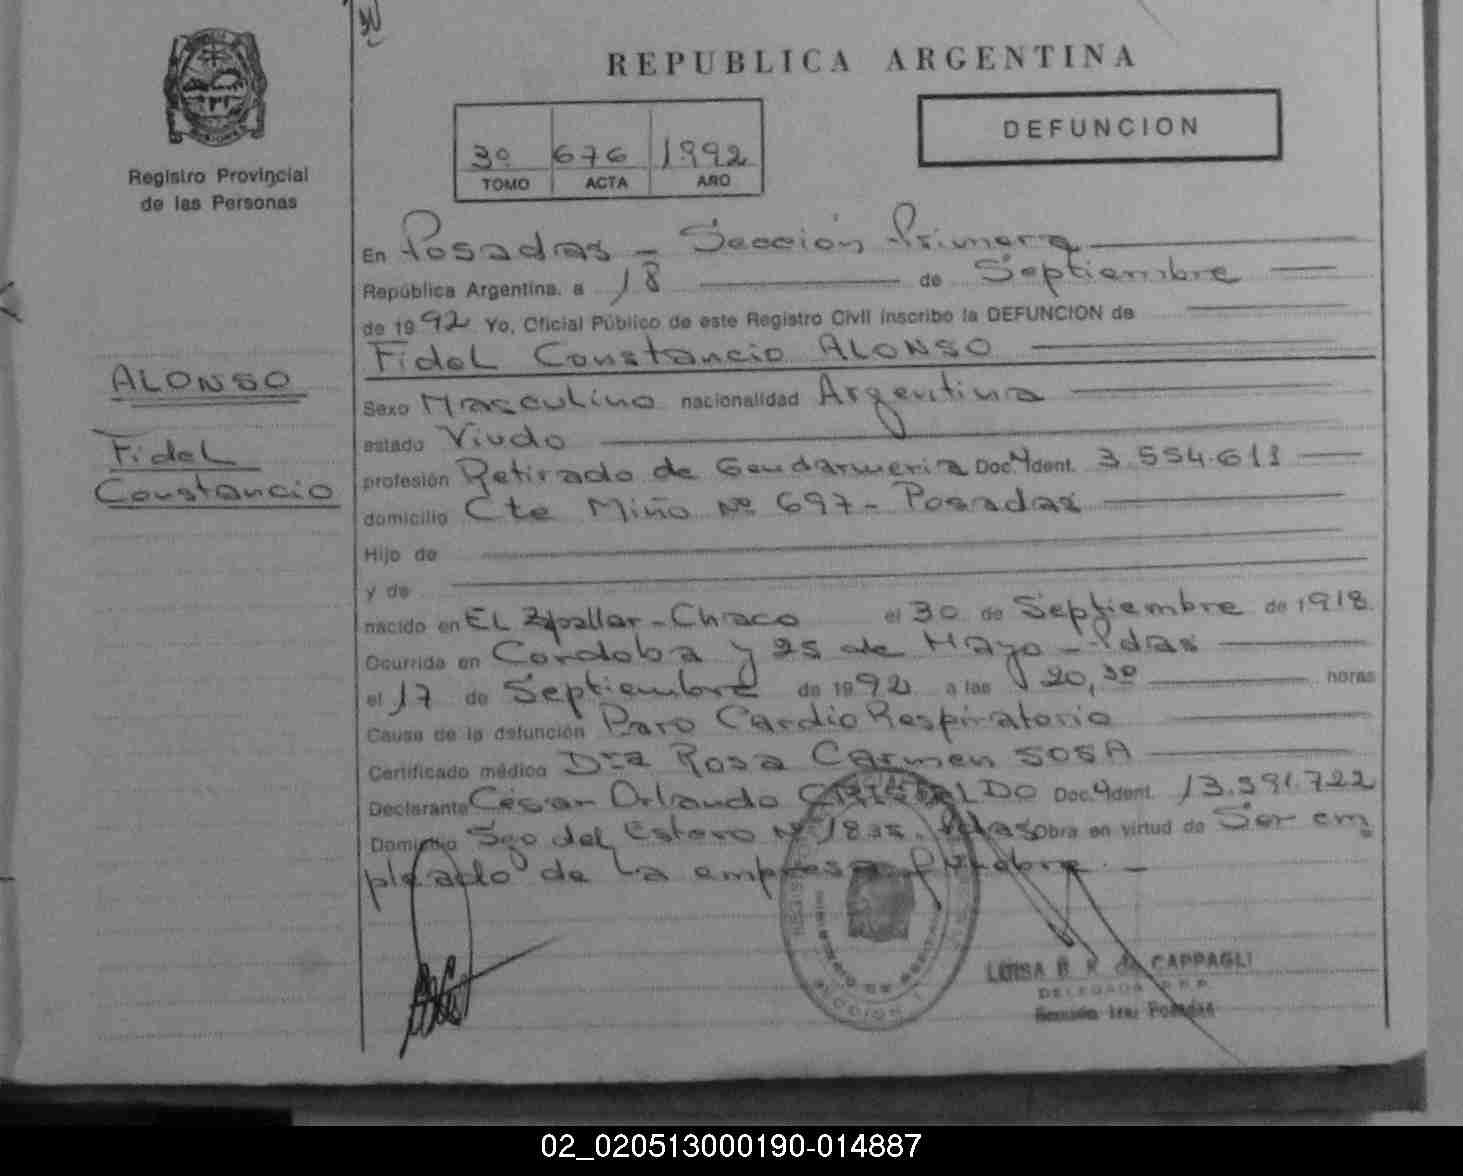 REPUBLICA ARGENTINA
Registro Provincial
de las Personas
3º 676 1992
TOMO ACTA AÑO
DEFUNCION
En Posadas - Sección Primera
República Argentina, a 18 de Septiembre
de 1992 Yo, Oficial Público de este Registro Civil inscribo la DEFUNCION de
Fidel Constancio ALONSO
ALONSO
Fidel
Constancio
Sexo Masculino nacionalidad Argentina
estado Viudo
profesión Retirado de Gendarmeria Doc. Ident. 3.554.611
domicilio Cte Miño Nº 697 - Posadas
Hijo de
y de
nacido en EL Zapallar - Chaco el 30 de Septiembre de 1918.
Ocurrida en Cordoba y 25 de Mayo - Pdas
el 17 de Septiembre de 1992 a las 20,30 horas
Causa de la defunción Paro CardioRespiratorio
Certificado médico Dra Rosa Carmen SOSA
Declarante César Orlando Doc. Ident. 13.391.722
Domicilio Sgo del Estero Nº 1835. Pdas Obra en virtud de Ser em
pleado de la empresa fúnebre. -
LUISA B. R. de CAPPAGLI
DELEGADA R.P.P.
Sección 1ra. Posadas
02_020513000190-014887